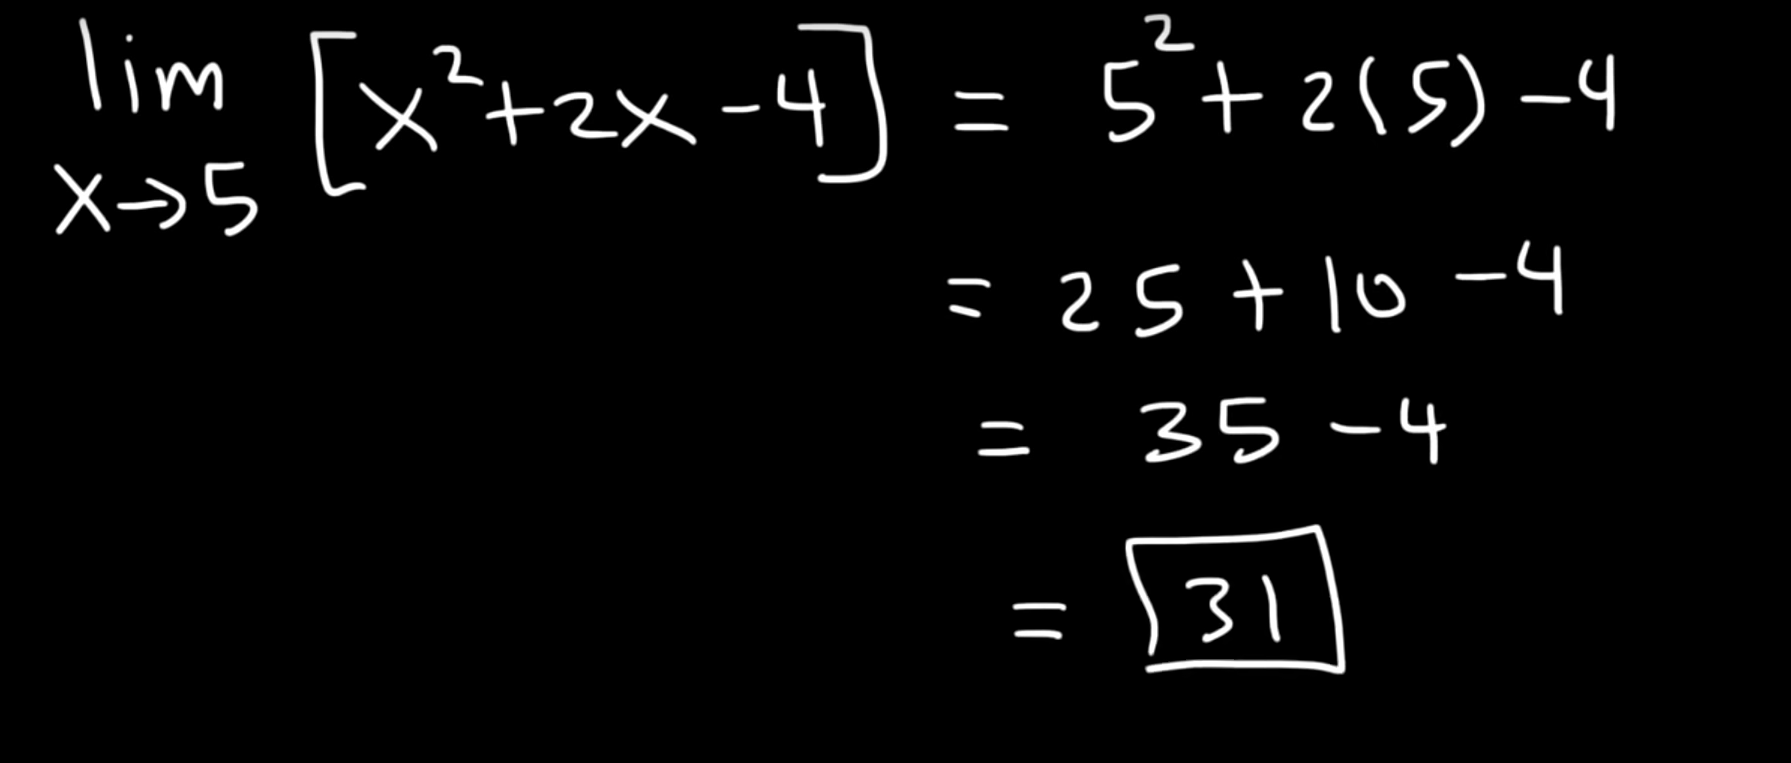 lim [x²+2x-4] = 5² + 2(5) - 4
x→5
= 25 + 10 - 4
= 35 - 4
= 31